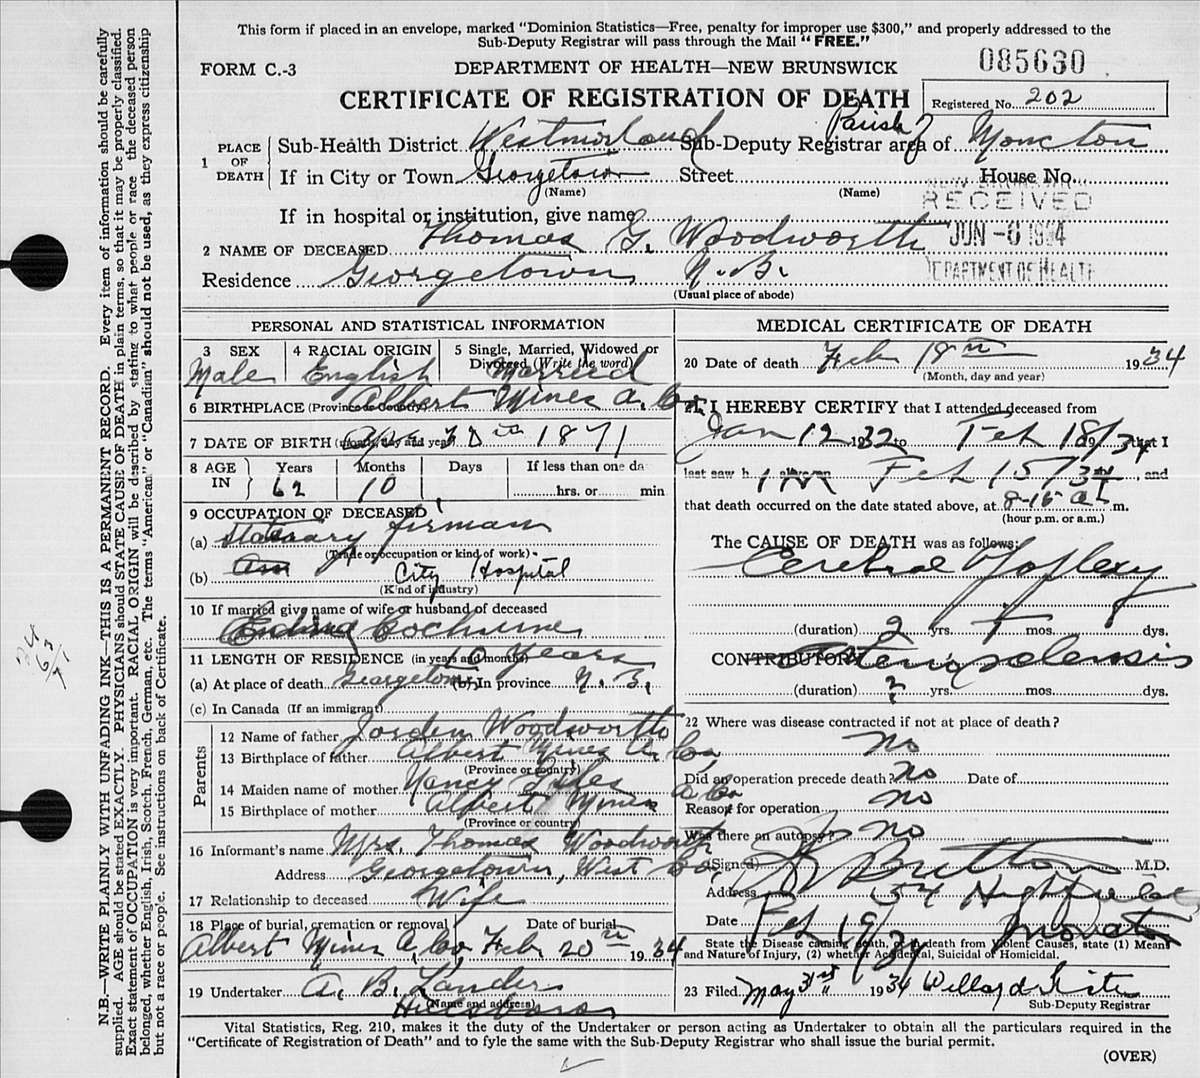 This form if placed in an envelope, marked "Dominion Statistics—Free, penalty for improper use $300," and properly addressed to the
Sub-Deputy Registrar will pass through the Mail "FREE."
FORM C.-3
DEPARTMENT OF HEALTH—NEW BRUNSWICK
085630
CERTIFICATE OF REGISTRATION OF DEATH
Registered No. 202
1 PLACE OF DEATH
Sub-Health District Westmorland Sub-Deputy Registrar area of Parish of Moncton
If in City or Town Georgetown Street House No.
(Name) (Name)
NEW BRUNSWICK
RECEIVED
JUN -6 1934
DEPARTMENT OF HEALTH
If in hospital or institution, give name
2 NAME OF DECEASED Thomas G. Woodworth
Residence Georgetown N.B.
(Usual place of abode)
PERSONAL AND STATISTICAL INFORMATION
3 SEX Male
4 RACIAL ORIGIN English
5 Single, Married, Widowed or Divorced (Write the word) Married
6 BIRTHPLACE (Province or Country) Albert Mines A. Co.
7 DATE OF BIRTH (month, day and year) 1871
8 AGE IN
Years 62
Months 10
Days
If less than one da
hrs. or min
9 OCCUPATION OF DECEASED
(a) firman
(Trade or occupation or kind of work)
(b) City Hospital
(Kind of industry)
10 If married give name of wife or husband of deceased
11 LENGTH OF RESIDENCE (in years and months) Years
(a) At place of death Georgetown (b) In province N.B.
(c) In Canada (If an immigrant)
Parents
12 Name of father Jorden Woodworth
13 Birthplace of father Albert Mines A. Co,
(Province or country)
14 Maiden name of mother Nancy
15 Birthplace of mother Albert Mines A Co
(Province or country)
16 Informant's name Mrs. Thomas Woodworth
Address Georgetown, West Co
17 Relationship to deceased Wife
18 Place of burial, cremation or removal Albert Mines A. Co,
Date of burial Feb 20th 1934
19 Undertaker A. B. Landers
(Name and address) Hillsboro
MEDICAL CERTIFICATE OF DEATH
20 Date of death Feb 18th 1934
(Month, day and year)
21 I HEREBY CERTIFY that I attended deceased from
Jan 12 1932 to Feb 18/34 that I
last saw him alive on Feb 15/34, and
that death occurred on the date stated above, at 8-15 a m.
(hour p.m. or a.m.)
The CAUSE OF DEATH was as follows:
Cerebral Apoplexy
(duration) 2 yrs. 1 mos. dys.
CONTRIBUTORY
(duration) ? yrs. mos. dys.
22 Where was disease contracted if not at place of death?
no
Did an operation precede death? no Date of
Reason for operation no
Was there an autopsy? no
(Signed) M.D.
Address 154 Highfield St
Date Feb 19/34 Moncton
State the Disease causing death, or in death from Violent Causes, state (1) Means
and Nature of Injury, (2) whether Accidental, Suicidal or Homicidal.
23 Filed May 31st 1934 Willard
Sub-Deputy Registrar
Vital Statistics, Reg. 210, makes it the duty of the Undertaker or person acting as Undertaker to obtain all the particulars required in the
"Certificate of Registration of Death" and to fyle the same with the Sub-Deputy Registrar who shall issue the burial permit.
(OVER)
N.B.—WRITE PLAINLY WITH UNFADING INK—THIS IS A PERMANENT RECORD. Every item of information should be carefully
supplied. AGE should be stated EXACTLY. PHYSICIANS should STATE CAUSE OF DEATH in plain terms, so that it may be properly classified.
Exact statement of OCCUPATION is very important. RACIAL ORIGIN will be described by stating to what people or race the deceased person
belonged, whether English, Irish, Scotch, French, German, etc. The terms "American" or "Canadian" should not be used, as they express citizenship
but not a race or people. See instructions on back of Certificate.